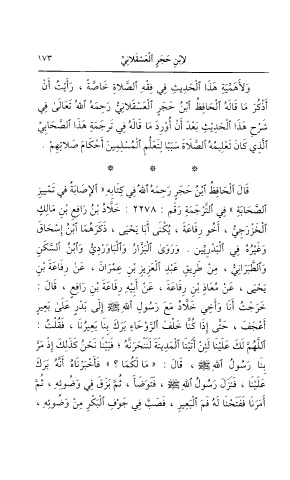 لابن حَجَرٍ ٱلْعَسْقَلَانِيِّ ١٧٣
وَلأَهَمِّيَّةِ هٰذَا ٱلْحَدِيثِ فِي فِقْهِ ٱلصَّلَاةِ خَاصَّةً ، رَأَيْتُ أَنْ
أَذْكُرَ مَا قَالَهُ ٱلْحَافِظُ ٱبْنُ حَجَرٍ ٱلْعَسْقَلَانِيُّ رَحِمَهُ ٱللهُ تَعَالَى فِي
شَرْحِ هٰذَا ٱلْحَدِيْثِ بَعْدَ أَنْ أُوْرِدَ مَا قَالَهُ فِي تَرْجَمَةِ هٰذَا ٱلصَّحَابِيِّ
ٱلَّذِي كَانَ تَعْلِيمُهُ ٱلصَّلَاةَ سَبَبًا لِتَعَلُّمِ ٱلْمُسْلِمِينَ أَحْكَامَ صَلَاتِهِمْ .
* * *
قَالَ ٱلْحَافِظُ ٱبْنُ حَجَرٍ رَحِمَهُ ٱللهُ فِي كِتَابِهِ « ٱلإِصَابَةُ فِي تَمْيِيزِ
ٱلصَّحَابَةِ » فِي ٱلتَّرْجَمَةِ رَقم : ٢٢٧٨ : خَلَّادُ بْنُ رَافِعِ بْنِ مَالِكٍ
ٱلْخَزْرَجِيُّ ، أَخُو رِفَاعَةَ ، يُكْنَى أَبَا يَحْيَى ، ذَكَرَهُمَا ٱبْنُ إِسْحَاقَ
وَغَيْرُهُ فِي ٱلْبَدْرِيِّينَ . وَرَوَىٰ ٱلْبَزَّارُ وَٱلْبَاوَرْدِيُّ وَٱبْنُ ٱلسَّكَنِ
وَٱلطَّبَرَانِيُّ ، مِنْ طَرِيقِ عَبْدِ ٱلْعَزِيزِ بْنِ عِمْرَانَ ، عَنْ رِفَاعَةَ بْنِ
يَحْيَى ، عَنْ مُعَاذِ بْنِ رِفَاعَةَ ، عَنْ أَبِيْهِ رِفَاعَةَ بْنِ رَافِعٍ ، قَالَ :
خَرَجْتُ أَنَا وَأَخِي خَلَّادٌ مَعَ رَسُولِ ٱللهِ ﷺ إِلَى بَدْرٍ عَلَىٰ بَعِيرٍ
أَعْجَفَ ، حَتَّى إِذَا كُنَّا خَلْفَ ٱلرَّوْحَاءِ بَرَكَ بِنَا بَعِيرُنَا ، فَقُلْتُ :
ٱللَّهُمَّ لَكَ عَلَيْنَا لَئِنْ أَتَيْنَا ٱلْمَدِينَةَ لَنَنْحَرَنَّهُ ؛ فَبَيْنَا نَحْنُ كَذٰلِكَ إِذْ مَرَّ
بِنَا رَسُولُ ٱللهِ ﷺ ، قَالَ : « مَا لَكُمَا ؟ » فَأَخْبَرْنَاهُ أَنَّهُ بَرَكَ
عَلَيْنَا ، فَنَزَلَ رَسُولُ ٱللهِ ﷺ ، فَتَوَضَّأَ ، ثُمَّ بَزَقَ فِي وَضُوئِهِ ، ثُمَّ
أَمَرَنَا فَفَتَحْنَا لَهُ فَمَ ٱلْبَعِيرِ ، فَصَبَّ فِي جَوْفِ ٱلْبَكْرِ مِنْ وَضُوئِهِ ،